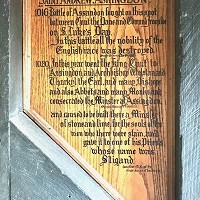 SAINT ANDREW, ASHINGDON
1016 Battle of Assandun fought on this spot
between Cnut the Dane and Edmund Ironside
on S. Luke's Day.
In this battle all the nobility of the
English race was destroyed.
1020. In this year went the King Cnut to
Assingdon and Archbishop Wulfstan and
Thurkyl the Earl, and many Bishops
and also Abbots and many Monks and
consecrated the Minster at Assingdon
and caused to be built there a Minster
of stone and lime, for the souls of the
men who there were slain, and
gave it to one of his Priests
whose name was
Stigand.